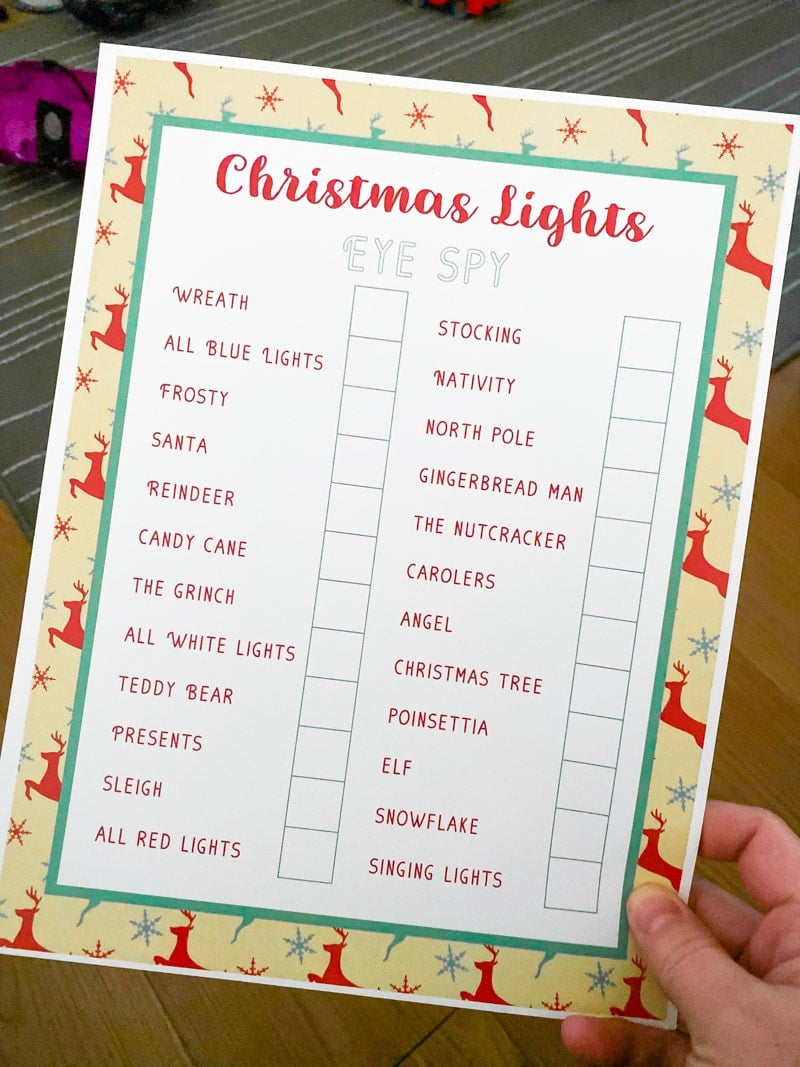 Christmas Lights
EYE SPY
WREATH
ALL BLUE LIGHTS
FROSTY
SANTA
REINDEER
CANDY CANE
THE GRINCH
ALL WHITE LIGHTS
TEDDY BEAR
PRESENTS
SLEIGH
ALL RED LIGHTS
STOCKING
NATIVITY
NORTH POLE
GINGERBREAD MAN
THE NUTCRACKER
CAROLERS
ANGEL
CHRISTMAS TREE
POINSETTIA
ELF
SNOWFLAKE
SINGING LIGHTS